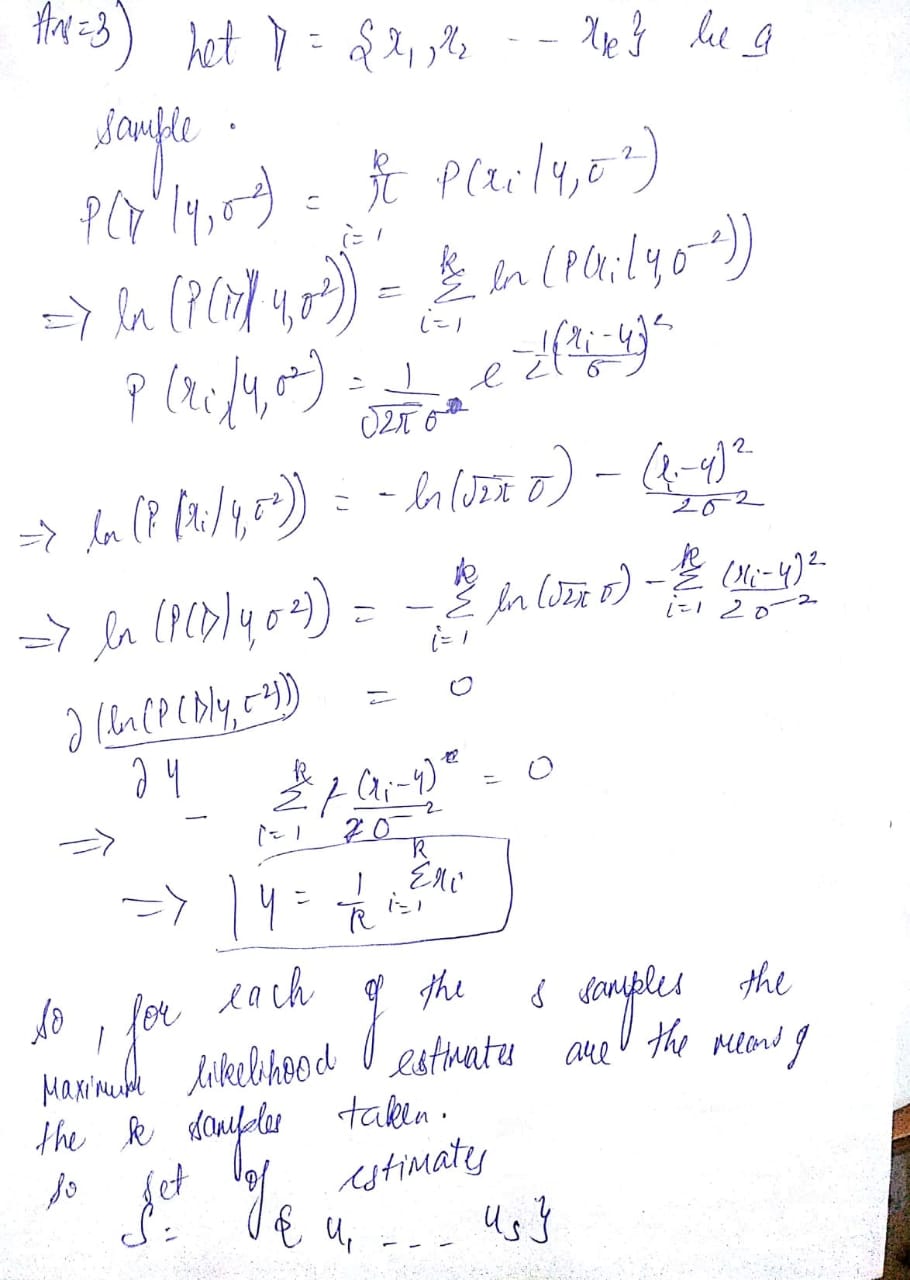 Ans=3) Let D = {x₁, x₂ -- xₖ} be a
sample.
P(D|μ,σ²) = π_{i=1}^{k} P(xᵢ/μ,σ²)
=> ln(P(D|μ,σ²)) = Σ_{i=1}^{k} ln(P(xᵢ/μ,σ²))
P(xᵢ/μ,σ²) = 1/(√2π σ) e^{-1/2((xᵢ-μ)/σ)²}
=> ln(P(xᵢ/μ,σ²)) = -ln(√2π σ) - (xᵢ-μ)²/2σ²
=> ln(P(D|μ,σ²)) = -Σ_{i=1}^{k} ln(√2π σ) - Σ_{i=1}^{k} (xᵢ-μ)²/2σ²
∂(ln(P(D|μ,σ²)))/∂μ = 0
=> - Σ_{i=1}^{k} 2(xᵢ-μ)/2σ² = 0
=> μ = 1/k Σ_{i=1}^{k} xᵢ
So, for each of the s samples the
Maximum likelihood estimates are the means of
the k samples taken.
So set of estimates
S = { μ₁ --- μₛ}